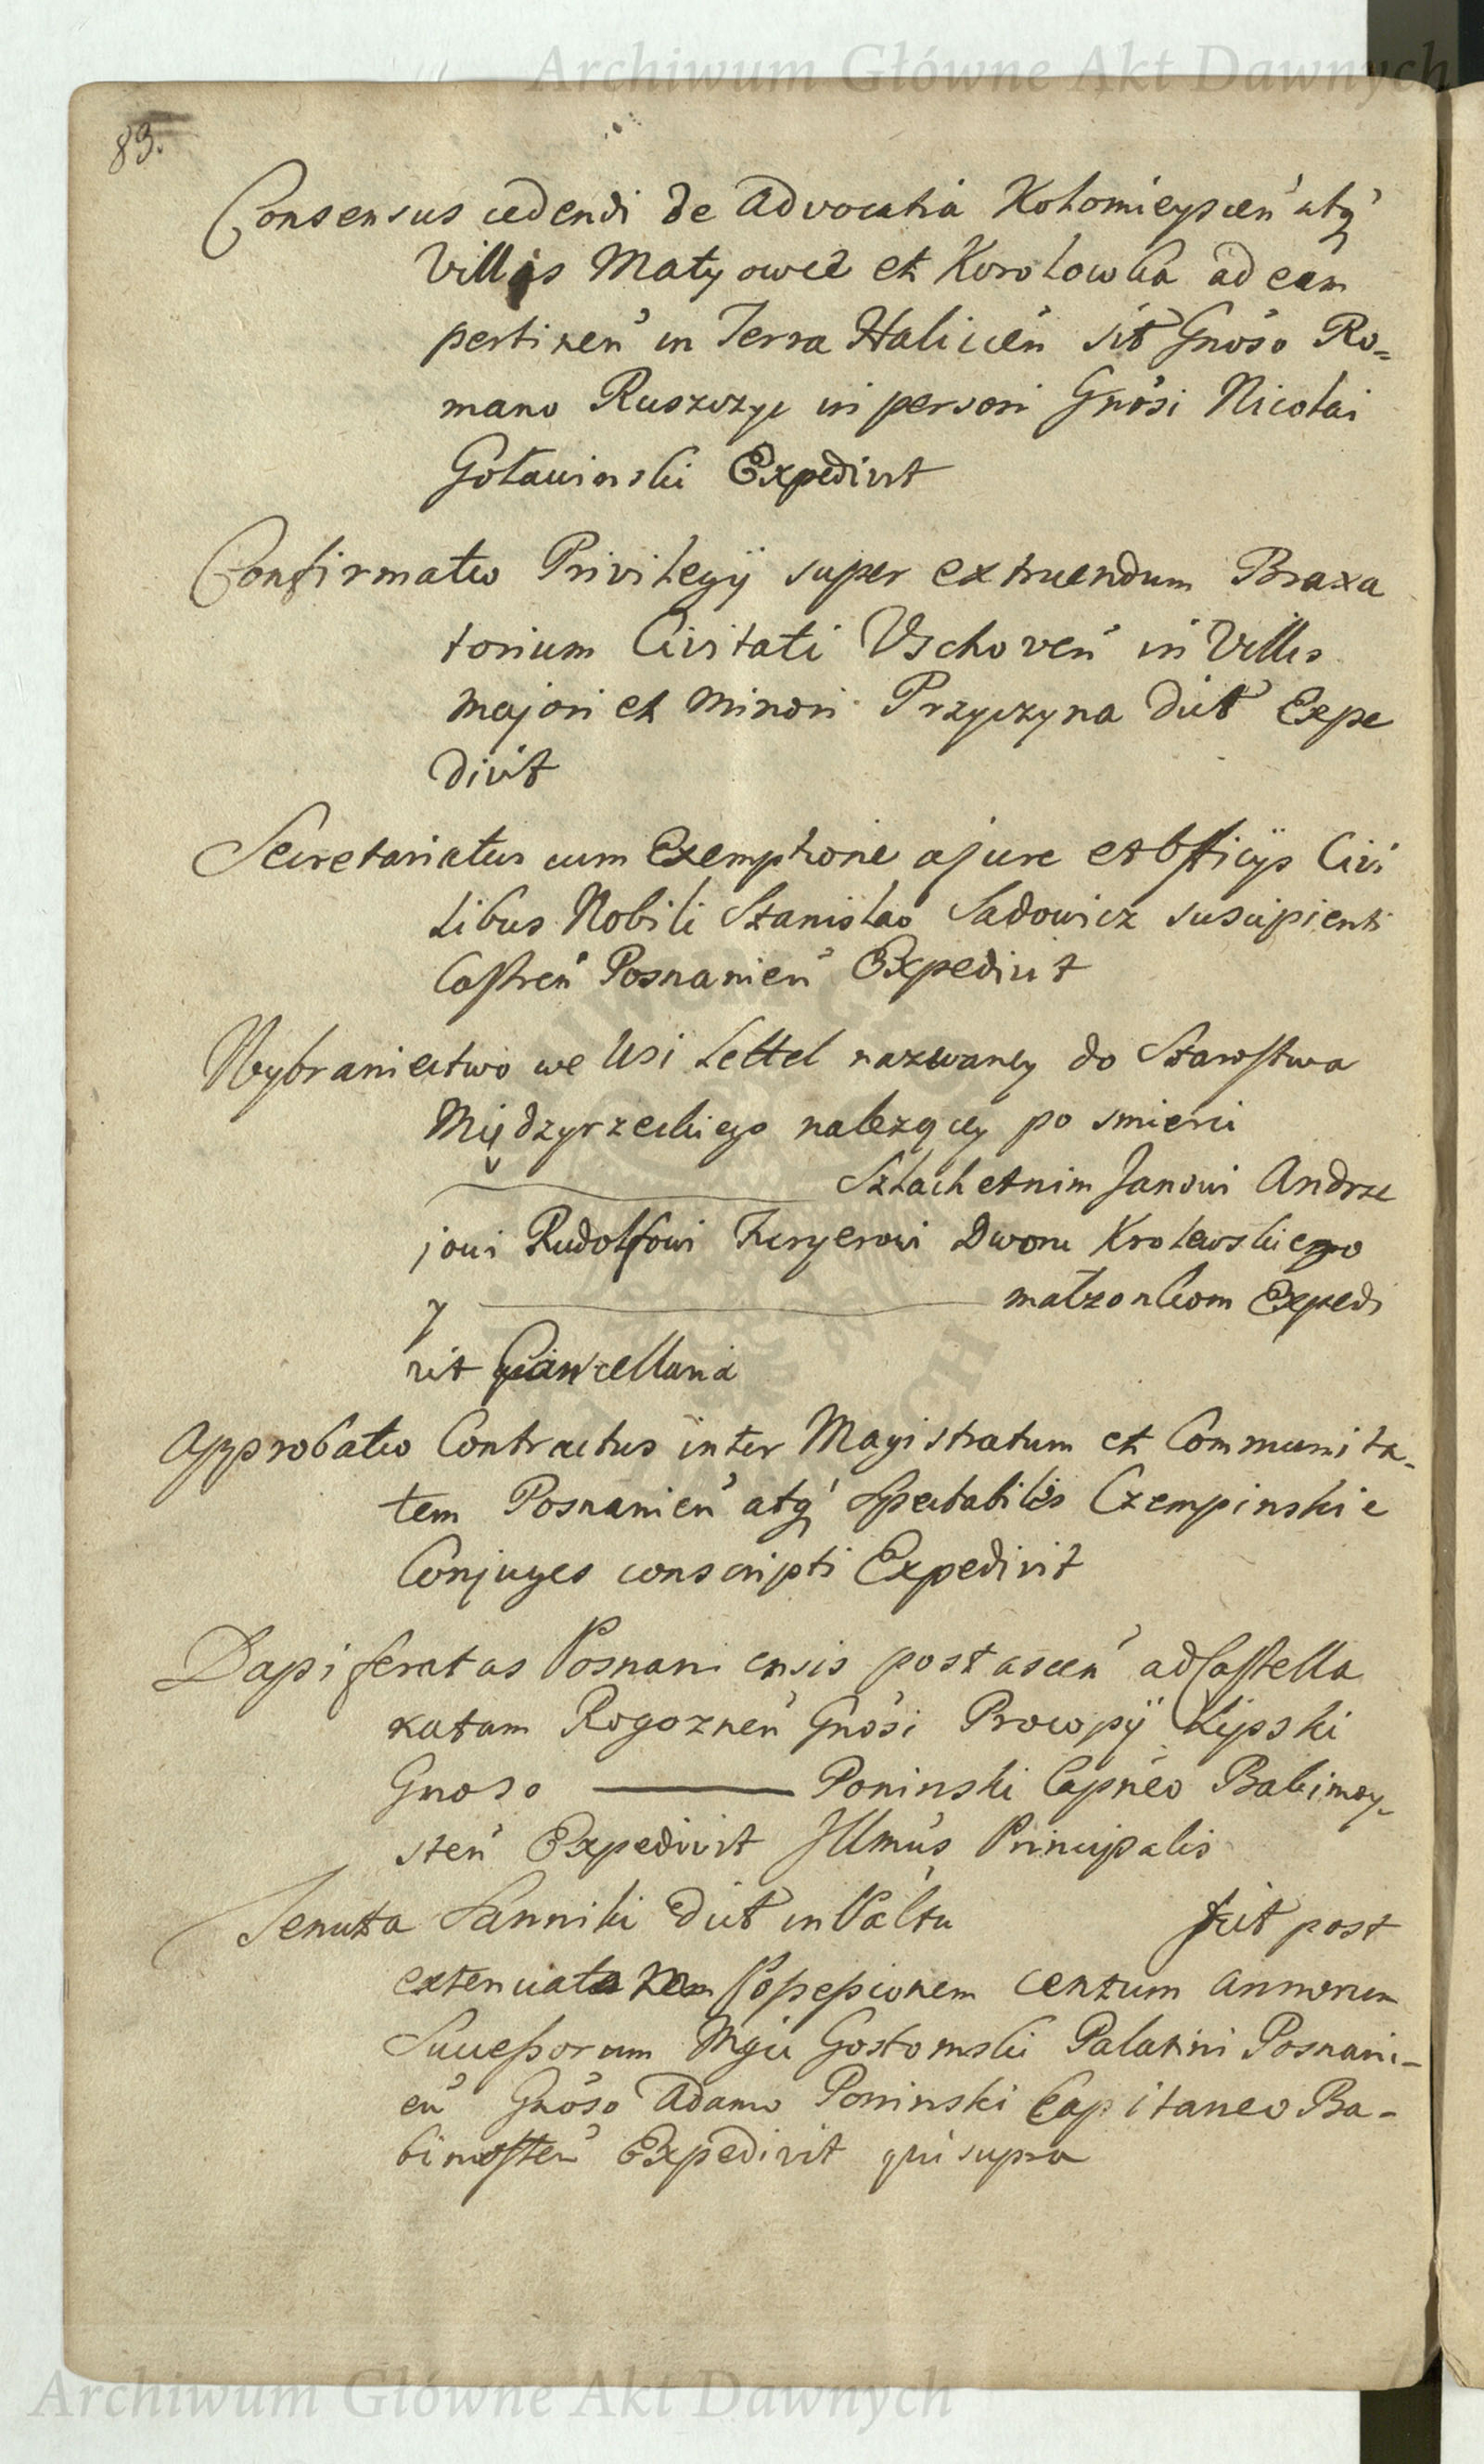 Archiwum Główne Akt Dawnych
83.
Consensus cedendi de Advocatia Kołomieyscen̄ atq̄
Villis Matyowce et Korolowka ad eam
pertinen̄ in Terra Halicien̄ sit Gnoso Ro=
mano Ruszczyc in person Gnosi Nicolai
Goławinski Expedivit
Confirmatio Privilegij super extruendum Braxa
torium Civitati Vschoven̄ in Villis
majori et minori Przyczyna dict Expe
divit
Secretariatus cum Exemptione a jure et officijs Civi
libus Nobili Stanislao Sadowicz suscipienti
Castren̄ Posnanien̄ Expedivit
Wybraniectwo we Wsi Lettel nazwaney do Starostwa
Międzyrzeckiego nalezącey po smierci
Szlachetnim Janowi Andrze
jowi Rudolfowi Kuryerowi Dworu Krolewskiego
y małzonkom Expedi
vit Cancellaria
Approbatio Contractus inter Magistratum et Communita-
tem Posnanien̄ atq̄ Spectabiles Czempinskie
Conjuges conscripti Expedivit
Dapiferatus Posnaniensis post ascen̄ ad Castella
natum Rogoznen̄ Gnosi Procopij Lipski
Gnoso Poninski Capneo Babimoy-
sten̄ Expedivit Illmus Principalis
Tenutta Sanniki dict in Paltu fuit post
Possessionem centum annorum
Successorum Mgci Gostomski Palatini Posnani-
en̄ Gnoso Adamo Poninski Capitaneo Ba-
bimosten̄ Expedivit qui supra
Archiwum Główne Akt Dawnych